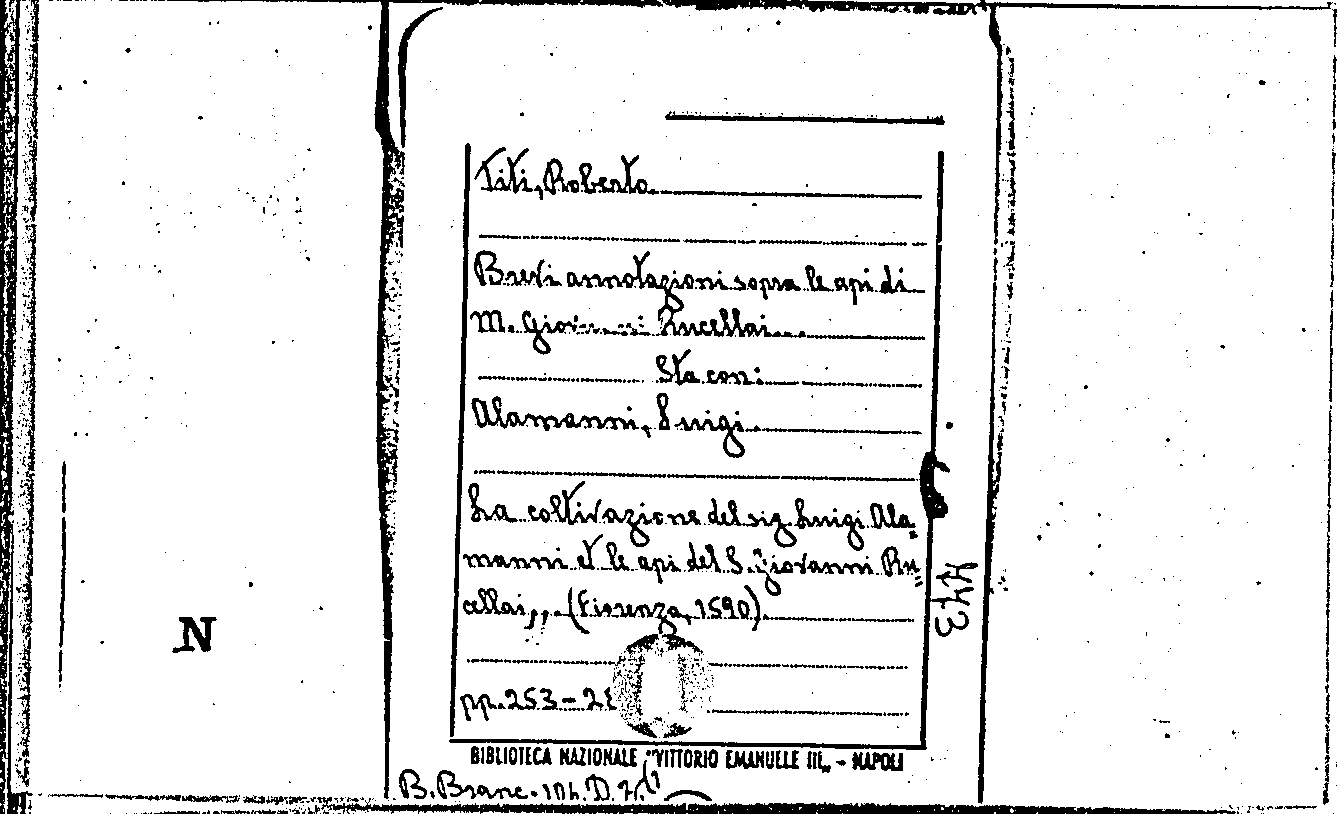 Titi, Roberto
Brevi annotazioni sopra le api di
M. Giovanni Rucellai...
Sta con:
Alamanni, Luigi
La coltivazione del sig. Luigi Ala=
manni et le api del S. Giovanni Ru=
cellai,,. (Fiorenza, 1590).
pp. 253-2
443
N
BIBLIOTECA NAZIONALE "VITTORIO EMANUELE III„ - NAPOLI
B. Branc. 104. D.